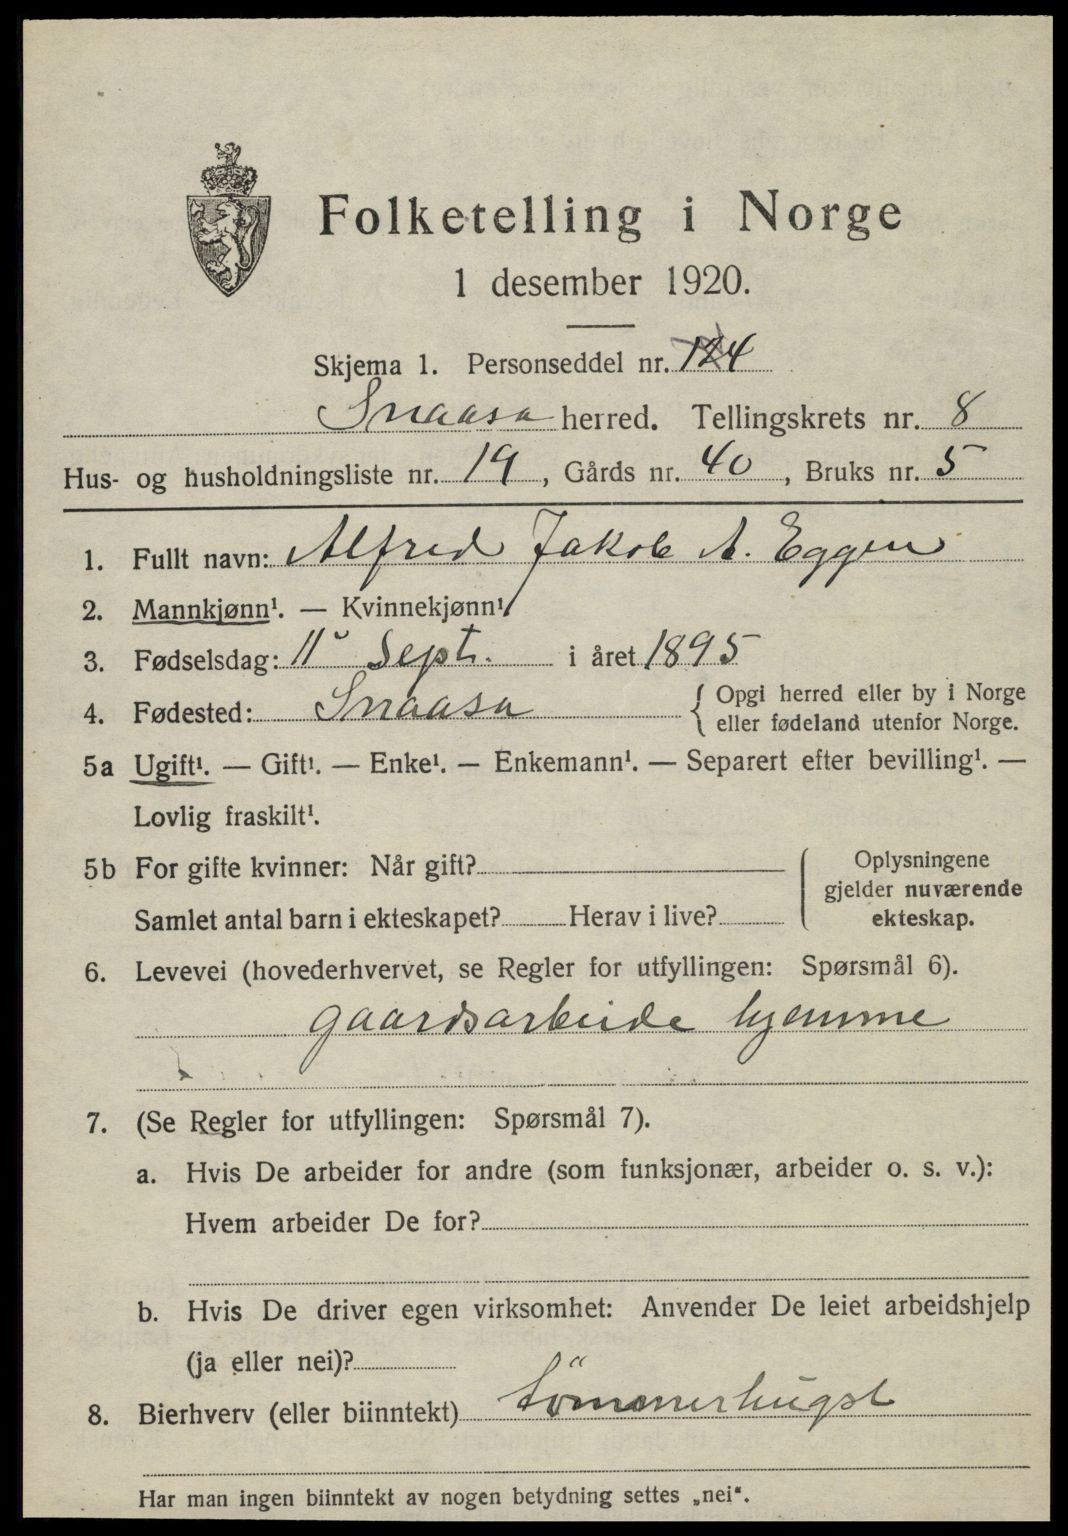 Folketelling i Norge
1 desember 1920.
Skjema 1. Personseddel nr. 124
Snaasa herred. Tellingskrets nr. 8
Hus- og husholdningsliste nr. 19, Gårds nr. 40, Bruks nr. 5
1. Fullt navn: Alfred Jakob A. Eggen
2. Mannkjønn¹. — Kvinnekjønn¹.
3. Fødselsdag: 11 Sept. i året 1895
4. Fødested: Snaasa { Opgi herred eller by i Norge
eller fødeland utenfor Norge.
5a Ugift¹. — Gift¹. — Enke¹. — Enkemann¹. — Separert efter bevilling¹. —
Lovlig fraskilt¹.
5b For gifte kvinner: Når gift?
Samlet antal barn i ekteskapet? Herav i live?
Oplysningene
gjelder nuværende
ekteskap.
6. Levevei (hovederhvervet, se Regler for utfyllingen: Spørsmål 6).
gaardsarbeide hjemme
7. (Se Regler for utfyllingen: Spørsmål 7).
a. Hvis De arbeider for andre (som funksjonær, arbeider o. s. v.):
Hvem arbeider De for?
b. Hvis De driver egen virksomhet: Anvender De leiet arbeidshjelp
(ja eller nei)?
8. Bierhverv (eller biinntekt) tömmerhugst
Har man ingen biinntekt av nogen betydning settes „nei“.